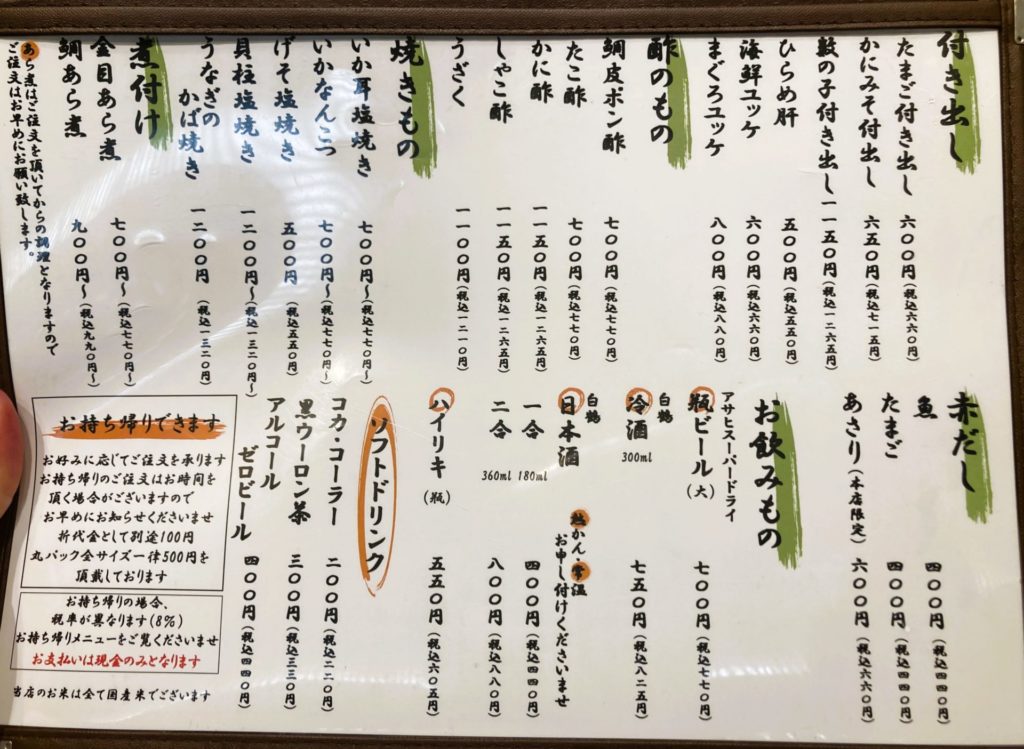 付き出し
たまご付き出し 六〇〇円(税込六六〇円)
かにみそ付出し 六五〇円(税込七一五円)
数の子付き出し 一一五〇円(税込一二六五円)
ひらめ肝 五〇〇円(税込五五〇円)
海鮮ユッケ 六〇〇円(税込六六〇円)
まぐろユッケ 八〇〇円(税込八八〇円)
酢のもの
鯛皮ポン酢 七〇〇円(税込七七〇円)
たこ酢 七〇〇円(税込七七〇円)
かに酢 一一五〇円(税込一二六五円)
しゃこ酢 一一五〇円(税込一二六五円)
うざく 一一〇〇円(税込一二一〇円)
焼きもの
いか耳塩焼き 七〇〇円〜(税込七七〇円〜)
いかなんこつ 七〇〇円〜(税込七七〇円〜)
げそ塩焼き 五〇〇円(税込五五〇円)
貝柱塩焼き 一二〇〇円〜(税込一三二〇円〜)
うなぎの
かば焼き 一二〇〇円(税込一三二〇円)
煮付け
金目あら煮 七〇〇円〜(税込七七〇円〜)
鯛あら煮 九〇〇円〜(税込九九〇円〜)
あら煮はご注文を頂いてからの調理となりますので
ご注文はお早めにお願い致します。
赤だし
魚 四〇〇円(税込四四〇円)
たまご 四〇〇円(税込四四〇円)
あさり(本店限定) 六〇〇円(税込六六〇円)
お飲みもの
アサヒスーパードライ
瓶ビール(大) 七〇〇円(税込七七〇円)
白鶴
冷酒 300ml 七五〇円(税込八二五円)
白鶴
日本酒
熱かん・常温
お申し付けくださいませ
一合 180ml 四〇〇円(税込四四〇円)
二合 360ml 八〇〇円(税込八八〇円)
ハイリキ(瓶) 五五〇円(税込六〇五円)
ソフトドリンク
コカ・コーラー 二〇〇円(税込二二〇円)
黒ウーロン茶 三〇〇円(税込三三〇円)
アルコール
ゼロビール 四〇〇円(税込四四〇円)
お持ち帰りできます
お好みに応じてご注文を承ります
お持ち帰りのご注文はお時間を
頂く場合がございますので
お早めにお知らせくださいませ
折代金として別途100円
丸パック全サイズ一律500円を
頂戴しております
お持ち帰りの場合、
税率が異なります(8%)
お持ち帰りメニューをご覧くださいませ
お支払いは現金のみとなります
当店のお米は全て国産米でございます